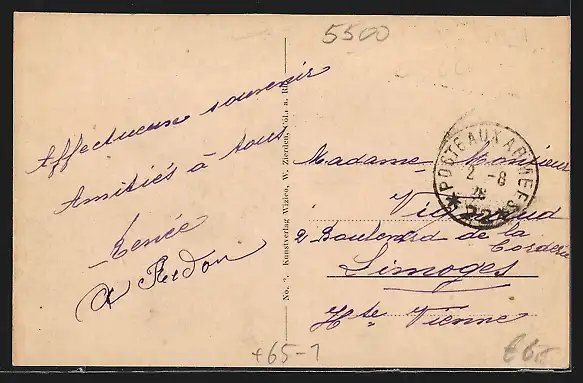 5500
Affectueux souvenir
Amitiés à tous
Renée
No. 7. Kunstverlag Wizico, W. Zierden, Cöl. a. Rh.
POSTE AUX ARMEES
2 - 8
28
*22*
Madame Monsieur
2 Boulevard de la
Corderie
Limoges
Hte Vienne
+65-1